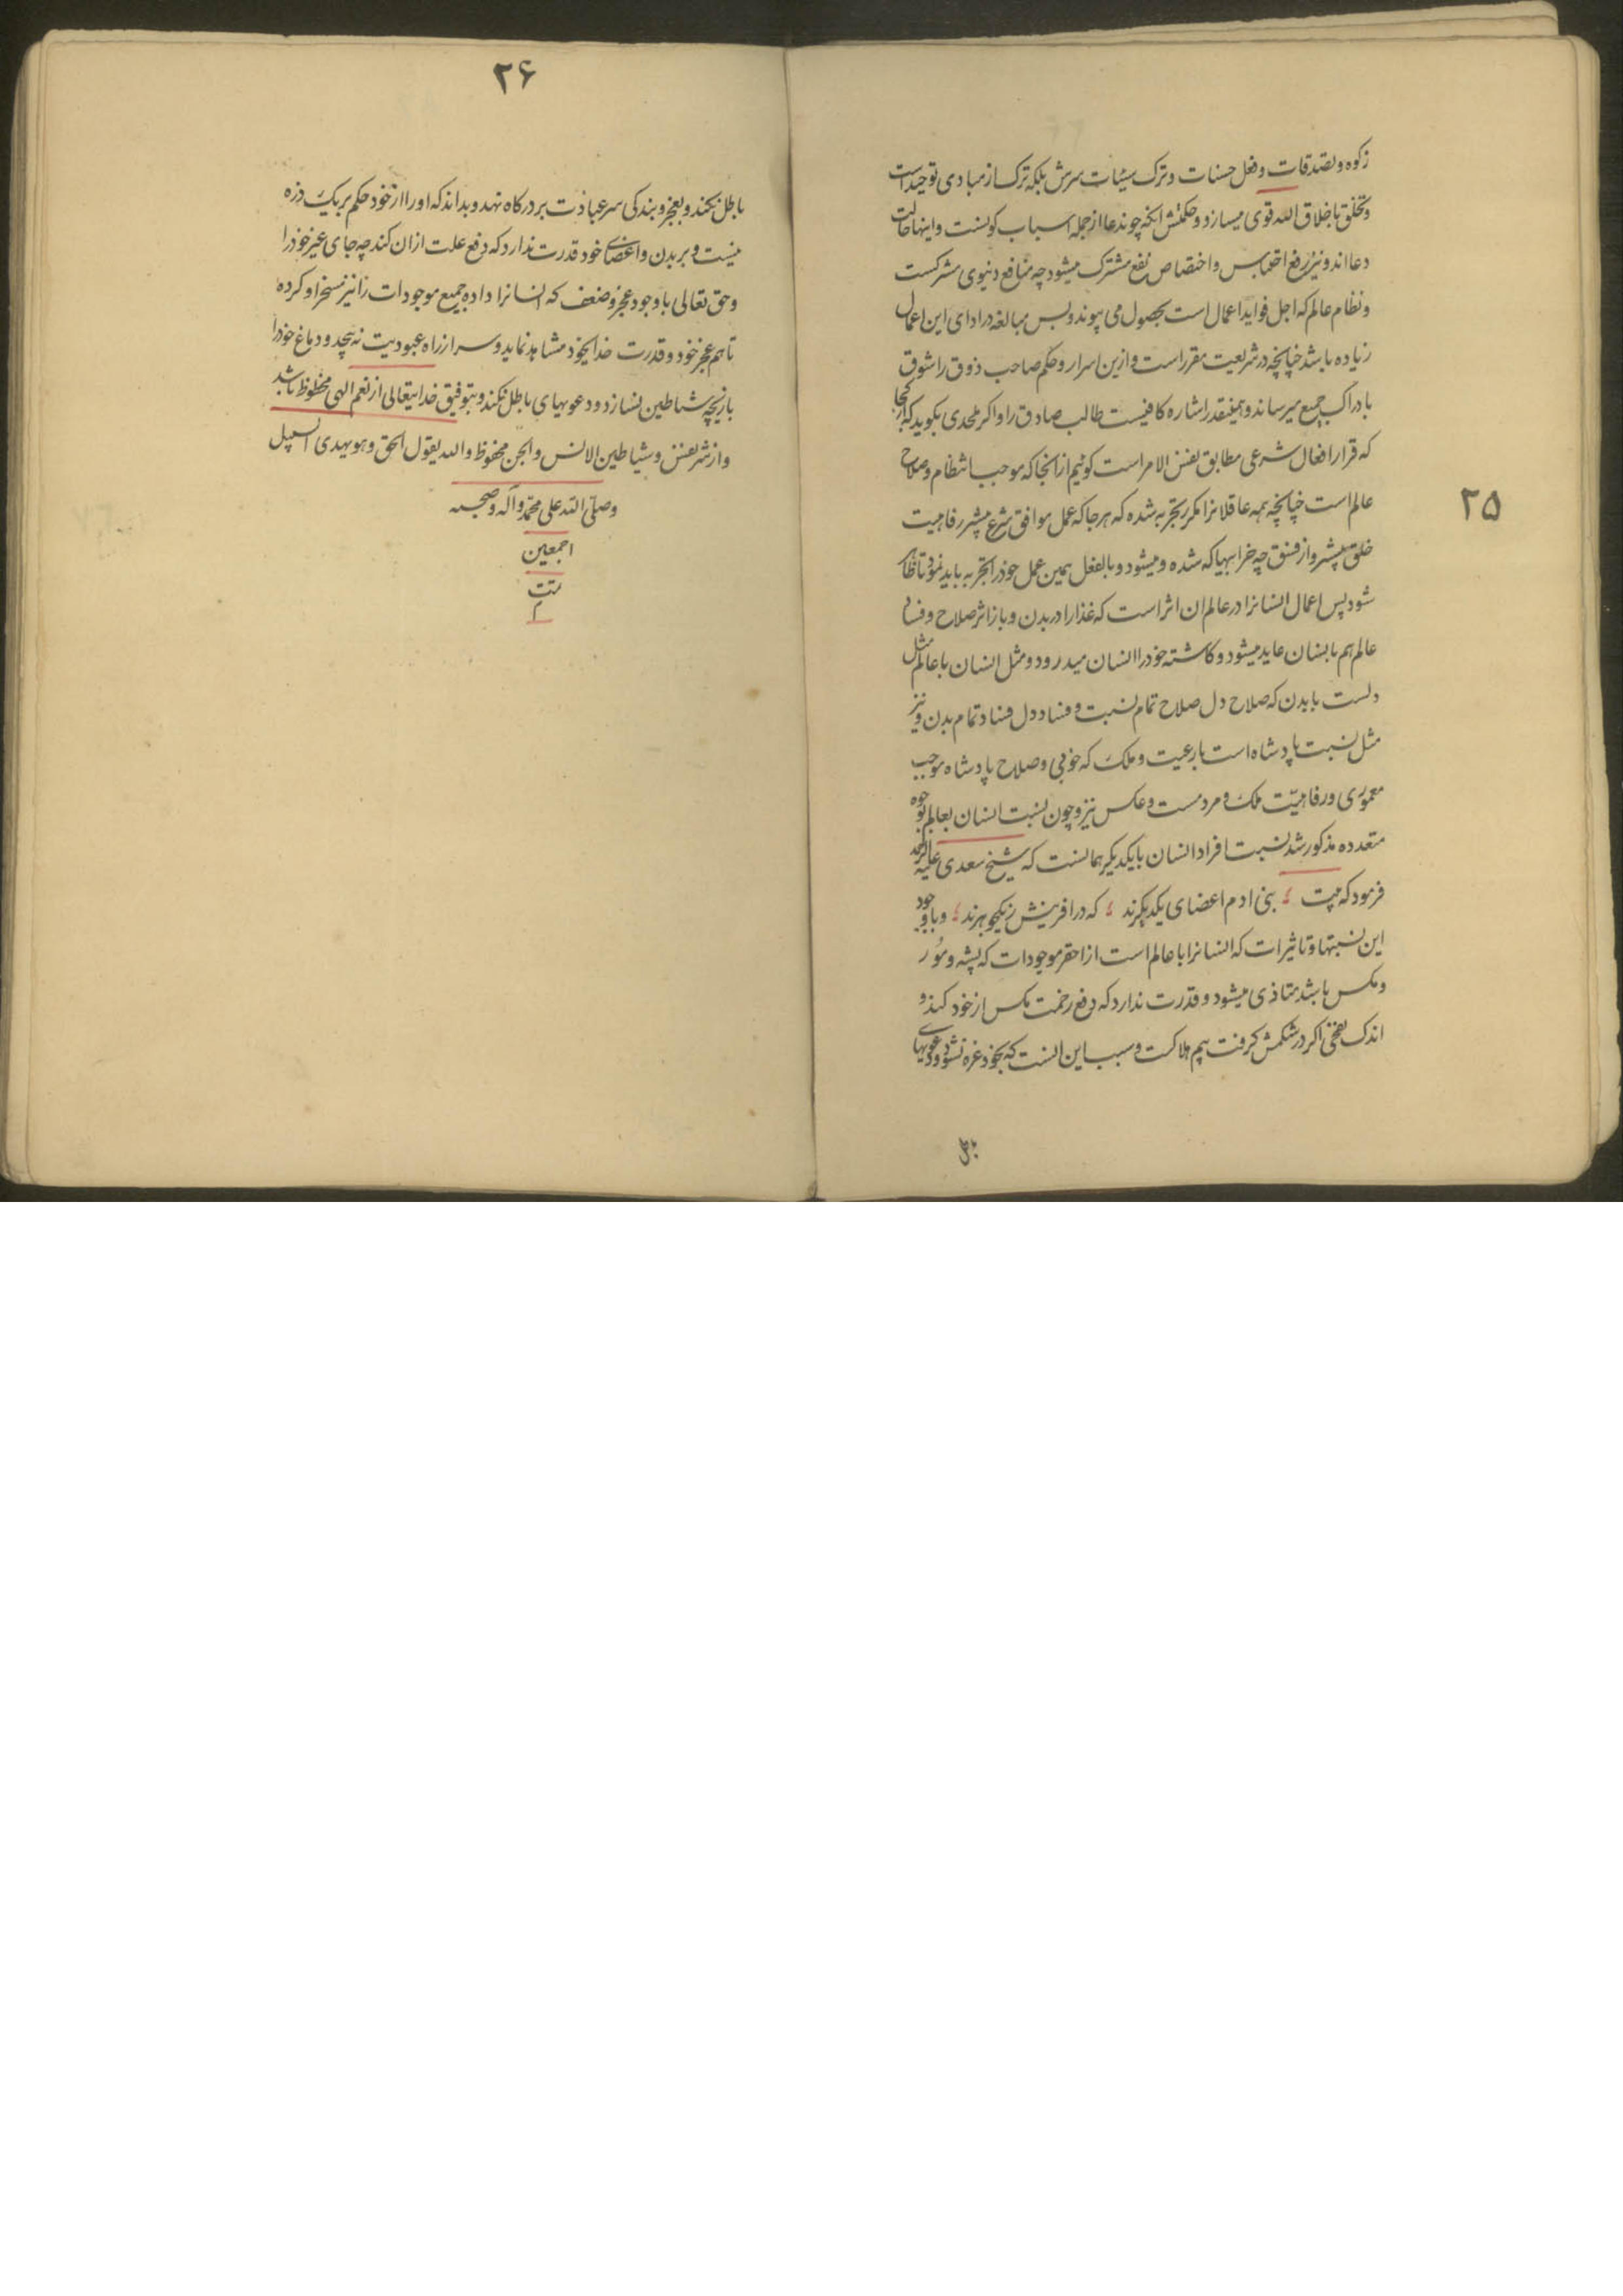 ۲۵
زکوه و تصدقات و فعل حسنات و ترک سیئات سرش بلکه ترک از مبادی توحید است
و تخلق باخلاق الله قوی میسازد و حکمتش انکه چون دعا از جمله اسباب کونست و اینها حالت
دعا اند و نیز رفع احتباس و اختصاص نفع مشترک میشود چه منافع دنیوی مشترکست
و نظام عالم که اجل فواید اعمال است بحصول می پیوندد و پس مبالغه در ادای این اعمال
زیاده باشد چنانچه در شریعت مقرر است و ازین اسرار و حکم صاحب ذوق را شوق
بادراک جمیع میرساند و همینقدر اشاره کافیست طالب صادق را و اکر ملحدی بکوید که از کجا
که قرار افعال شرعی مطابق نفس الامر است کوئیم از انجا که موجب انتظام و صلاح
عالم است چنانچه همه عاقلانرا مکرر تجربه شده که هر جا که عمل موافق شرع بیشتر رفاهیت
خلق بیشتر و از فسق چه خرابیها که شده و میشود و بالفعل همین عمل خود را تجربه باید نمود تا ظاهر
شود پس اعمال انسانرا در عالم ان اثر است که غذا را در بدن و باز اثر صلاح و فساد
عالم هم بانسان عاید میشود و کاشته خود را انسان میدرود و مثل انسان با عالم مثل
دلست با بدن که صلاح دل صلاح تمام نسبت و فساد دل فساد تمام بدن و نیز
مثل نسبت پادشاه است با رعیت و ملک که خوبی و صلاح پادشاه موجب
معموری و رفاهیّت ملک و مردمست و عکس نیز و چون نسبت انسان بعالم بوجوه
متعدده مذکور شد نسبت افراد انسان بایکدیکر همانست که شیخ سعدی علیه الرحمه
فرمود که بیت بنی ادم اعضای یکدیکرند که در افرینش ز یکجوهرند و با وجود
این نسبتها و تاثیرات که انسانرا با عالم است از احقر موجودات که پشه و مور
و مکس باشد متاذی میشود و قدرت ندارد که دفع زحمت مکس از خود کند و
اندک نفخی اکر در شکمش کرفت بیم هلاکت و سبب این انست که بخود غره نشود و دعویهای
باطل
۲۶
باطل نکند و بعجز و بندکی سر عبادت بر درکاه نهد و بداند که او را از خود حکم بر یک ذره
نیست و بر بدن و اعضای خود قدرت ندارد که دفع علت از ان کند چه جای غیر خود را
و حق تعالی باوجود عجز و ضعف که انسانرا داده جمیع موجودات را نیز مسخر او کرده
تا هم عجز خود و قدرت خدا بخود مشاهد نماید و سر از راه عبودیت نه پیچد و دماغ خود را
بازیچه شیاطین نسازد و دعویهای باطل نکند و بتوفیق خدایتعالی از نعم الهی محظوظ باشد
و از شر نفس و شیاطین الانس و الجن محفوظ و الله یقول الحق و هو یهدی السبیل
وصلّی الله علی محمّد و آله و صحبه
اجمعین
تمت